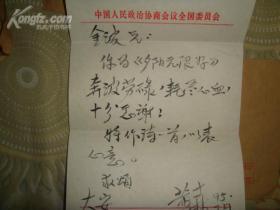 中国人民政治协商会议全国委员会
金波兄:
你为《夕阳无限好》
奔波劳碌,耗尽心血,
十分感谢!
特作诗一首以表
心意。
敬颂
大安
95.
kongfz.com